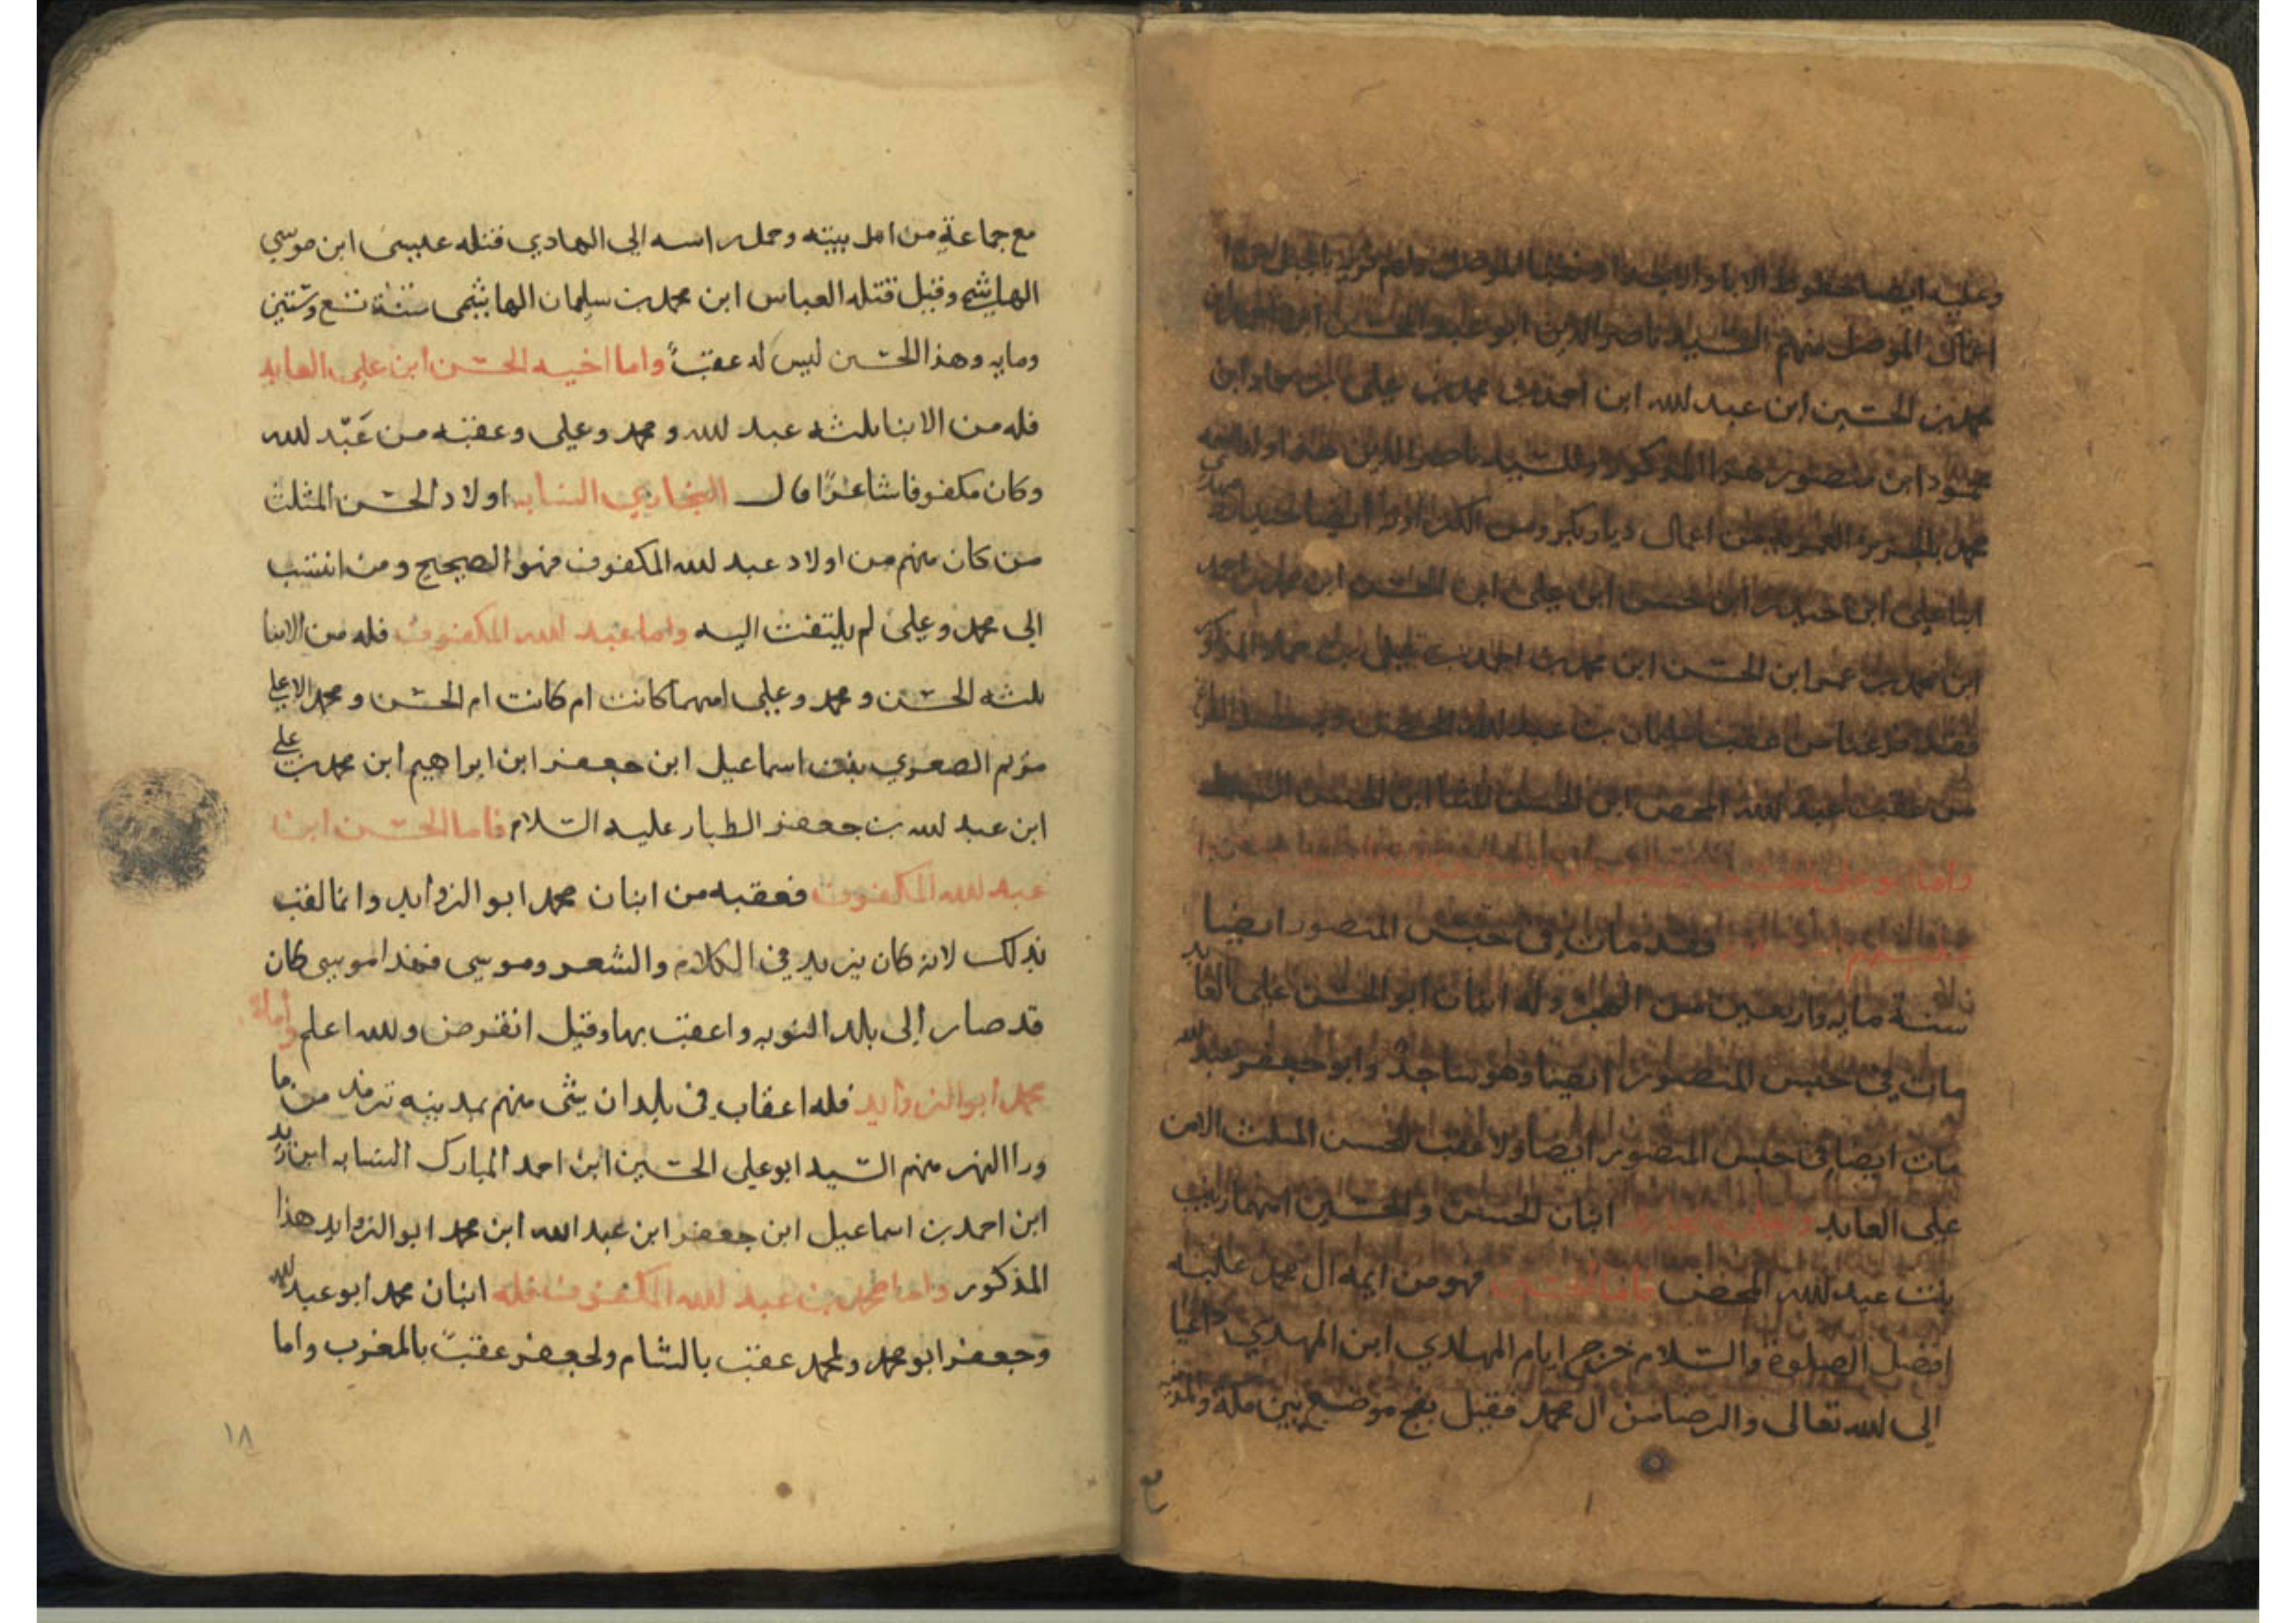 وعليه ايضا خطوط الاباء والاجداد
اعمال الموصل منهم السيد ناصر الدين ابو عبد الله الحسين ابن
محمد بن الحسين ابن عبد لله ابن احمد بن محمد بن علي بن حماد ابن
محمود ابن منصور هذا المذكور وللسيد ناصر الدين هذا اولاد
محمد بالجزيرة العمرية من اعمال ديار بكر ومن
علي ابن حيدر ابن حسن ابن علي ابن الحسن ابن محمد بن احمد
ابن محمد بن عمر ابن الحسن ابن محمد بن احمد بن علي بن حماد المذكور
فقد فرغنا من عقب سليمان بن عبد لله المحض
من عقب عبد لله المحض ابن الحسن المثنا ابن الحسن السبط
واما ابو علي الحسن
فقد مات في حبس المنصور ايضا
سنة مايه واربعين من الهجرة وله ابنان ابو الحسن علي العابد
مات في حبس المنصور ايضا وهو ساجد وابو جعفر عبد لله
مات ايضا في حبس المنصور ايضا ولا عقب للحسن المثلث الا من
علي العابد ولعلي العابد ابنان الحسن والحسين امهما زينب
بنت عبد لله المحض فاما الحسين فهو من ايمه ال محمد عليه
افضل الصلوة والسلام خرج ايام الهادي ابن المهدي داعيا
الى لله تعالى والرضا من ال محمد فقتل بفخ موضع بين مكه والمدينه
مع
مع جماعة من اهل بيته وحمل راسه الى الهادي قتله عيسى ابن موسى
الهاشمي وقيل قتله العباس ابن محمد بن سليمان الهاشمي سنة تسع وستين
ومايه وهذا الحسين ليس له عقب واما اخيه الحسن ابن علي العابد
فله من الابنا ثلثه عبد لله ومحمد وعلي وعقبه من عبد لله
وكان مكفوفا شاعرا قال البخاري النسابه اولاد الحسن المثلث
من كان منهم من اولاد عبد لله المكفوف فهو الصحيح ومن انتسب
الى محمد وعلى لم يلتفت اليه واما عبد لله المكفوف فله من الابنا
ثلثه الحسن ومحمد وعلي امهما كانت ام كانت ام الحسن ومحمد الاعلي
مريم الصغري بنت اسماعيل ابن جعفر ابن ابراهيم ابن محمد بن علي
ابن عبد لله بن جعفر الطيار عليه السلام فاما الحسن ابن
عبد لله المكفوف فعقبه من ابنان محمد ابو الزوايد وانما لقب
بذلك لانه كان يزيد في الكلام والشعر وموسى فهذا موسى كان
قد صار الى بلد النوبه واعقب بها وقيل انقرض ولله اعلم واما
محمد ابو الزوايد فله اعقاب في بلدان شتى منهم بمدينه ترمذ من ما
ورا النهر منهم السيد ابو علي الحسين ابن احمد المبارك النسابه ابن زيد
ابن احمد بن اسماعيل ابن جعفر ابن عبد الله ابن محمد ابو الزوايد هذا
المذكور واما محمد بن عبد لله المكفوف فله ابنان محمد ابو عبد لله
وجعفر ابو محمد ولمحمد عقب بالشام ولجعفر عقب بالمغرب واما
١٨